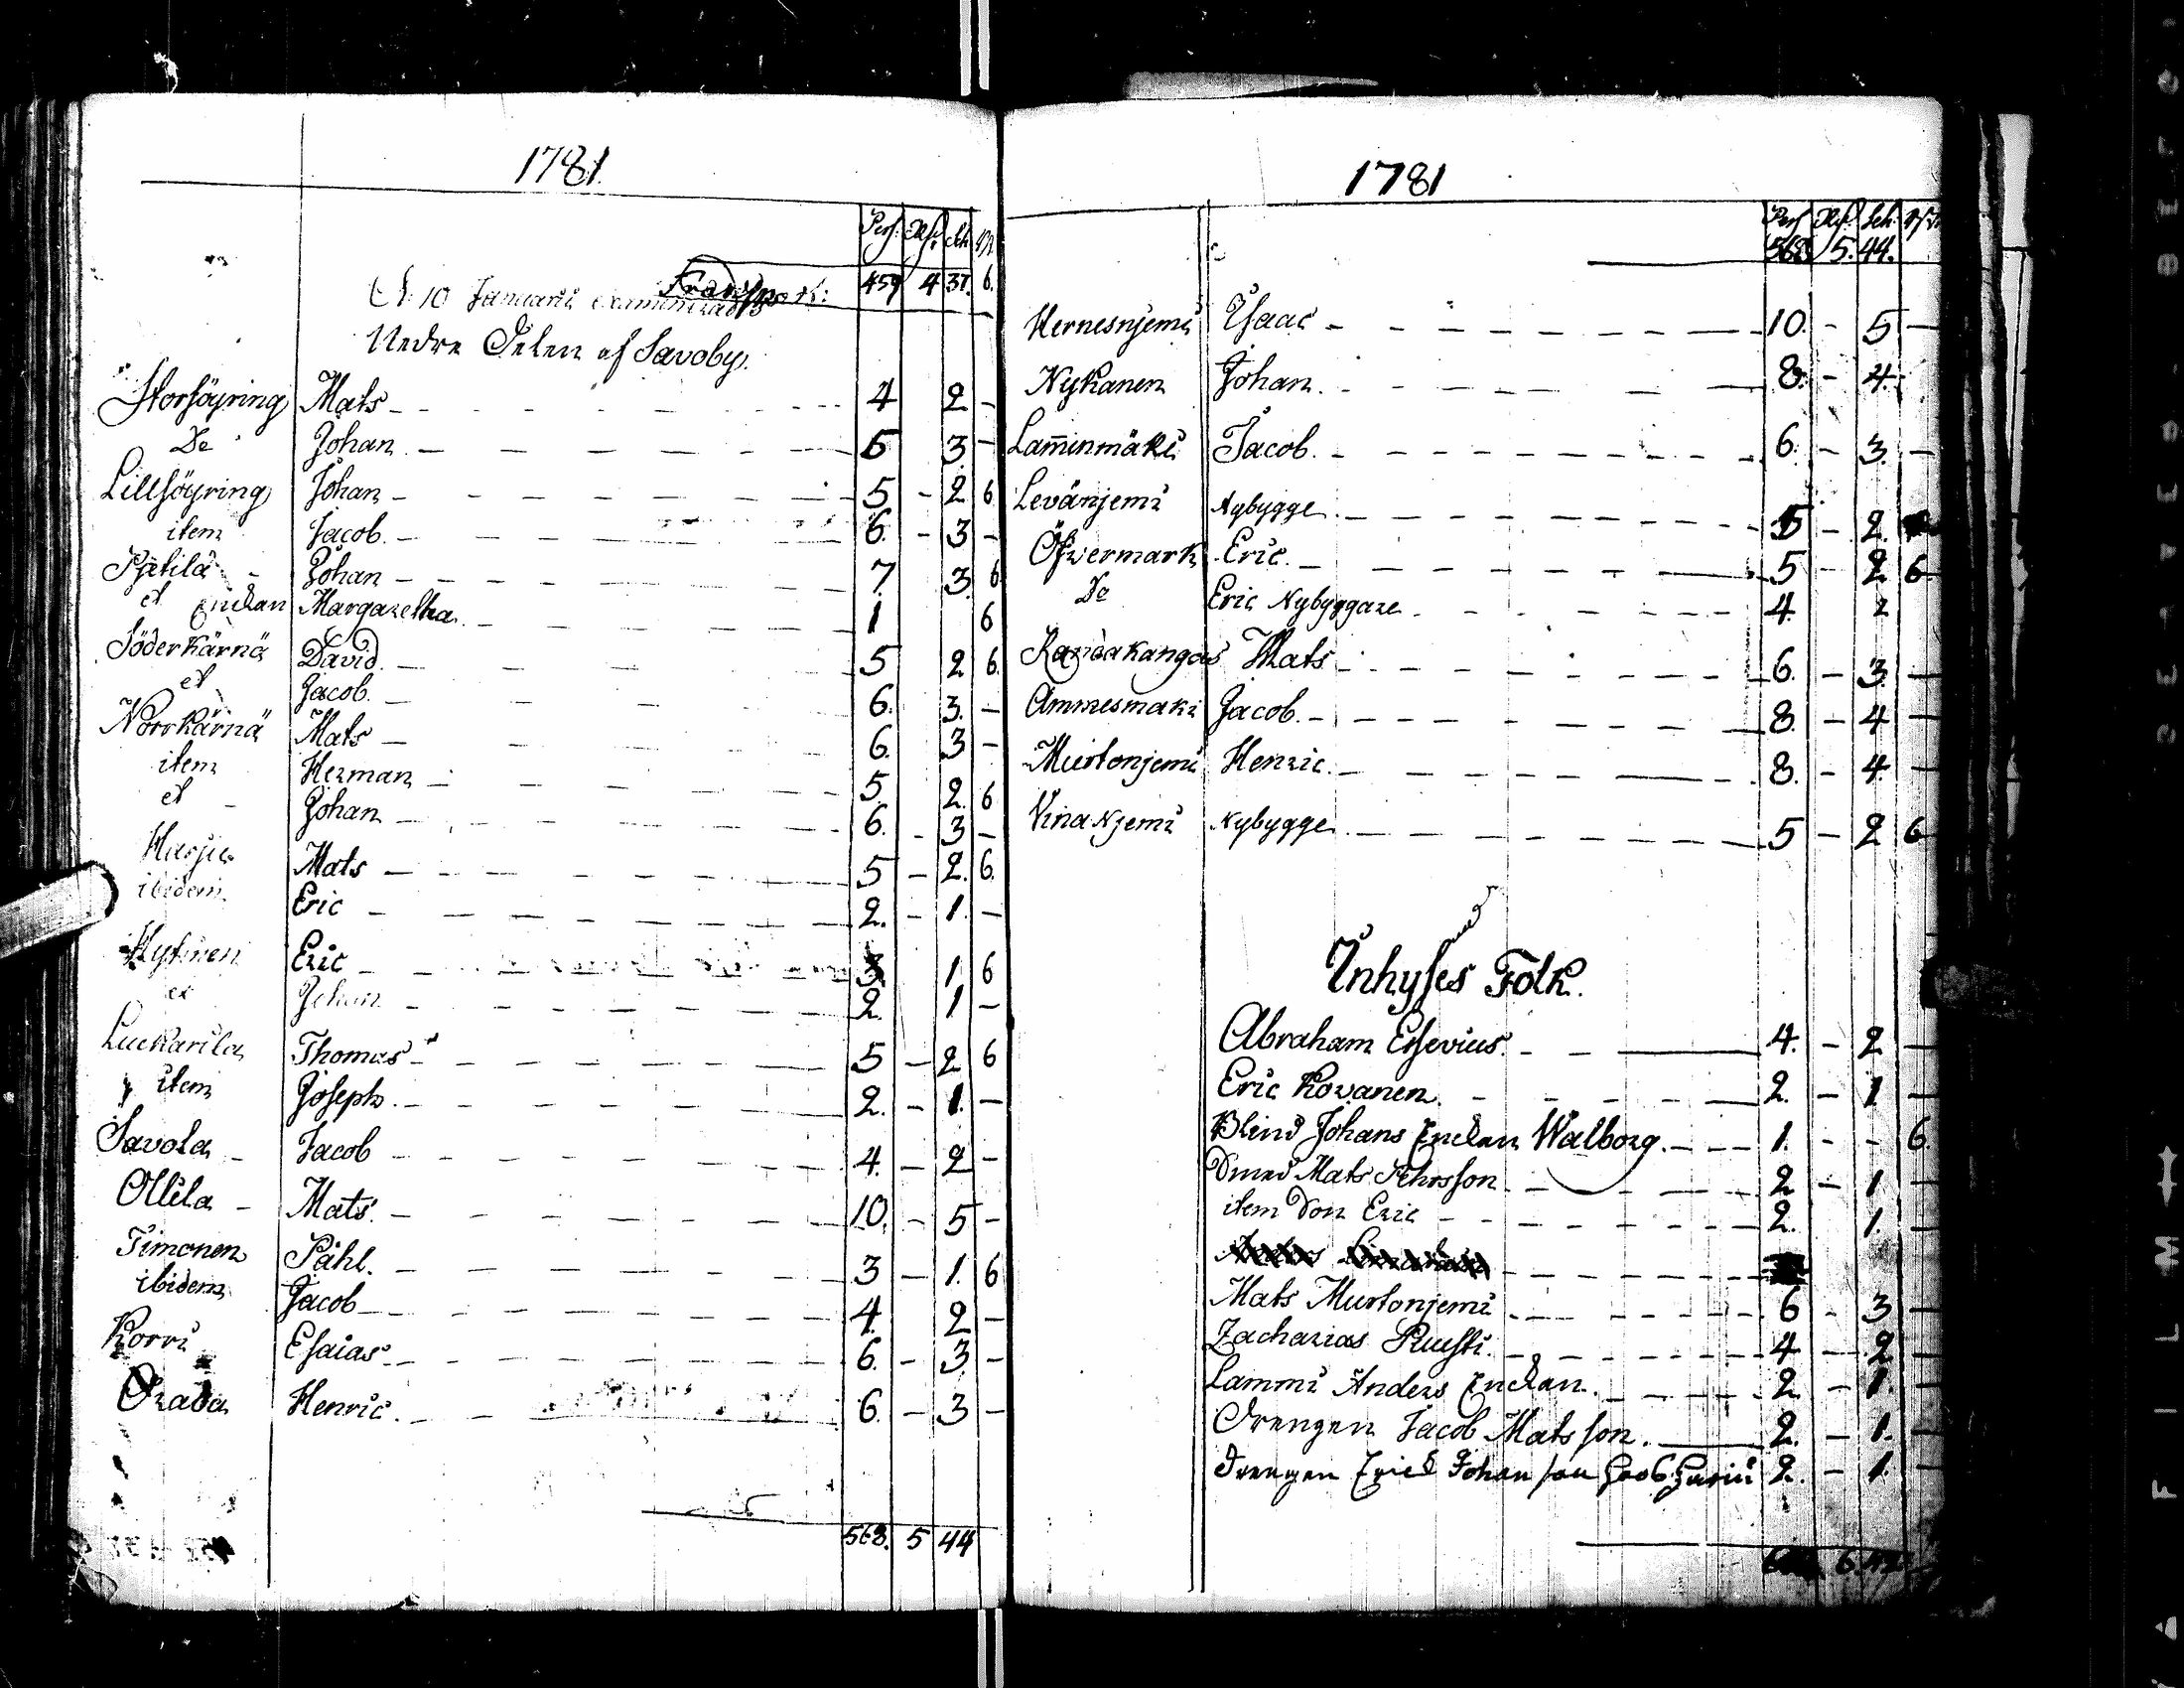 1781
Pers: Rdr: sch.
Transport: 459 4 37. 6.
d. 10 Januarii examinerades
Nedre Delen af Savoby.
Storsöyring Mats 4 2 -
De Johan 6 3 -
Lillsöyring Johan 5 - 2 6
item Jacob 6. - 3 -
Pjätilä Johan 7. 3. 6
et Enckan Margaretha 1 6
Söderkärnä David 5 2 6.
et Jacob. 6. 3. -
Norrkärnä Mats 6. 3 -
item Herman 5. 2. 6
et Johan 6. - 3 -
Harju Mats 5 - 2. 6.
ibidem Eric 2. - 1. -
Hytinen Eric 3 1 6
et Johan 2. 1 -
Luckarila Thomas 5 - 2 6
item Joseph. 2. - 1. -
Savola Jacob 4. - 2 -
Ollila Mats. 10. - 5 -
Timonen Påhl. 3 - 1. 6
ibidem Jacob 4. 2 -
Korri Esaias 6. - 3 -
Orada Henric. 6. - 3 -
568. 5 44
1781
Pers Rdr: sch.
568 5. 44.
Hernesnjemi Isaac 10. - 5 -
Nykanen Johan. 8. - 4.
Lam̅inmäki Jacob. 6. - 3. -
Levänjemi Nybygge 5 - 2.
Öfvermark Eric. 5 - 2 6
De Eric Nybyggare 4. 2
Mats 6. - 3. -
Ammesmaki Jacob. 8. - 4 -
Murtonjemi Henric. 8. - 4 -
Vinanjemi Nybygge 5 - 2 6
Inhyses Folk.
Abraham 4. - 2 -
Eric Kovanen. 2. - 1 -
Blind Johans Enckan Walborg. 1. - - 6.
Mats Pehrsson 2 - 1 -
item Son Eric 2. 1. -
Mats Murtonjemi 6 - 3 -
Zacharias Ruusti. 4 - 2 -
Lammi Anders Enckan. 2 - 1. -
Drengen Jacob Matsson. 2. - 1. -
Drengen Erick Johansson 2. - 1. -